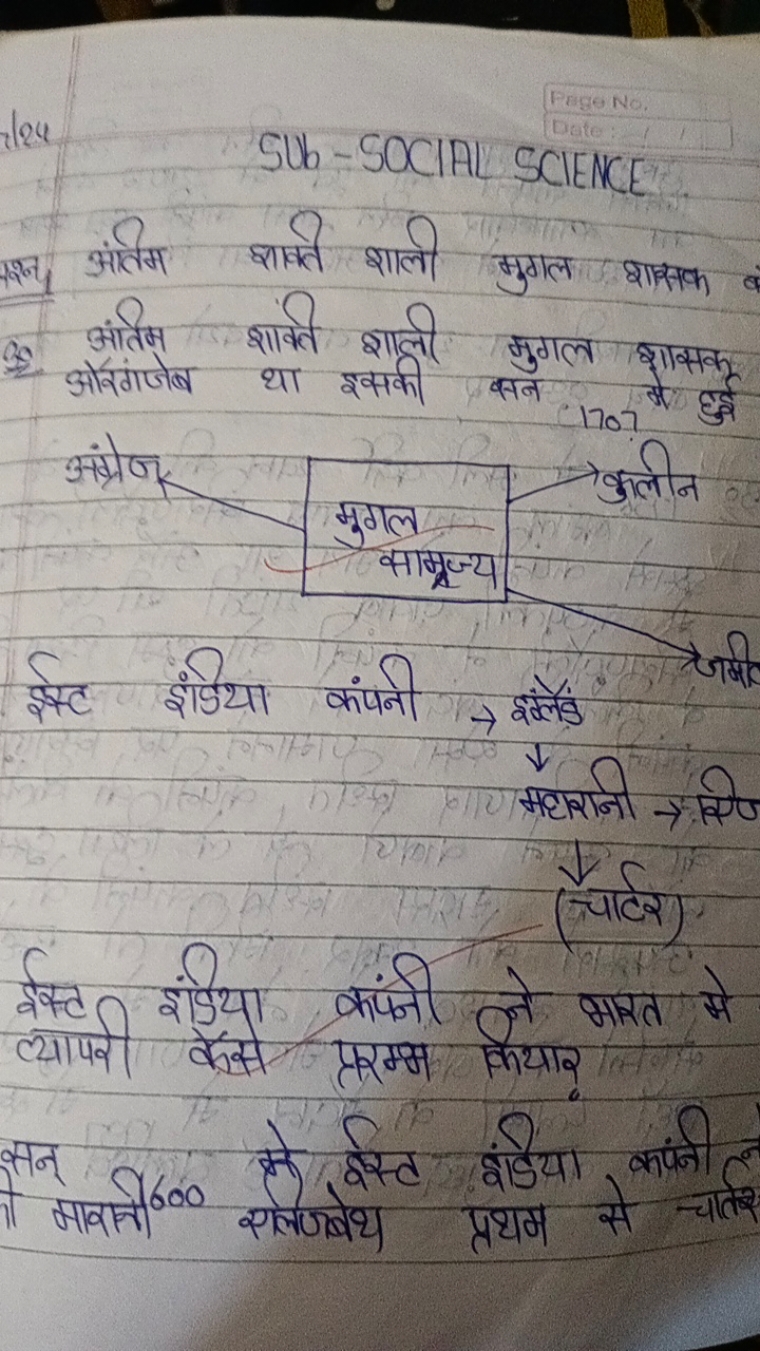 /24
Page No.
Date : / /
Sub - SOCIAL SCIENCE
प्रश्न अंतिम शाक्ति शाली मुगल शासक
उ० अंतिम शाक्ति शाली मुगल शासक
औरंगजेब था इसकी सन 1707 मे हुई
अंग्रेज
कुलीन
मुगल
साम्रज्य
ईस्ट इंडिया कंपनी → इंग्लैंड
↓
महारानी →
↓
(चार्टर)
ईस्ट इंडिया कंपनी ने भारत मे
व्यापरी कैसे प्ररम्म किया
सन् 600 मे ईस्ट इंडिया कंपनी
एलिजबेथ प्रथम से